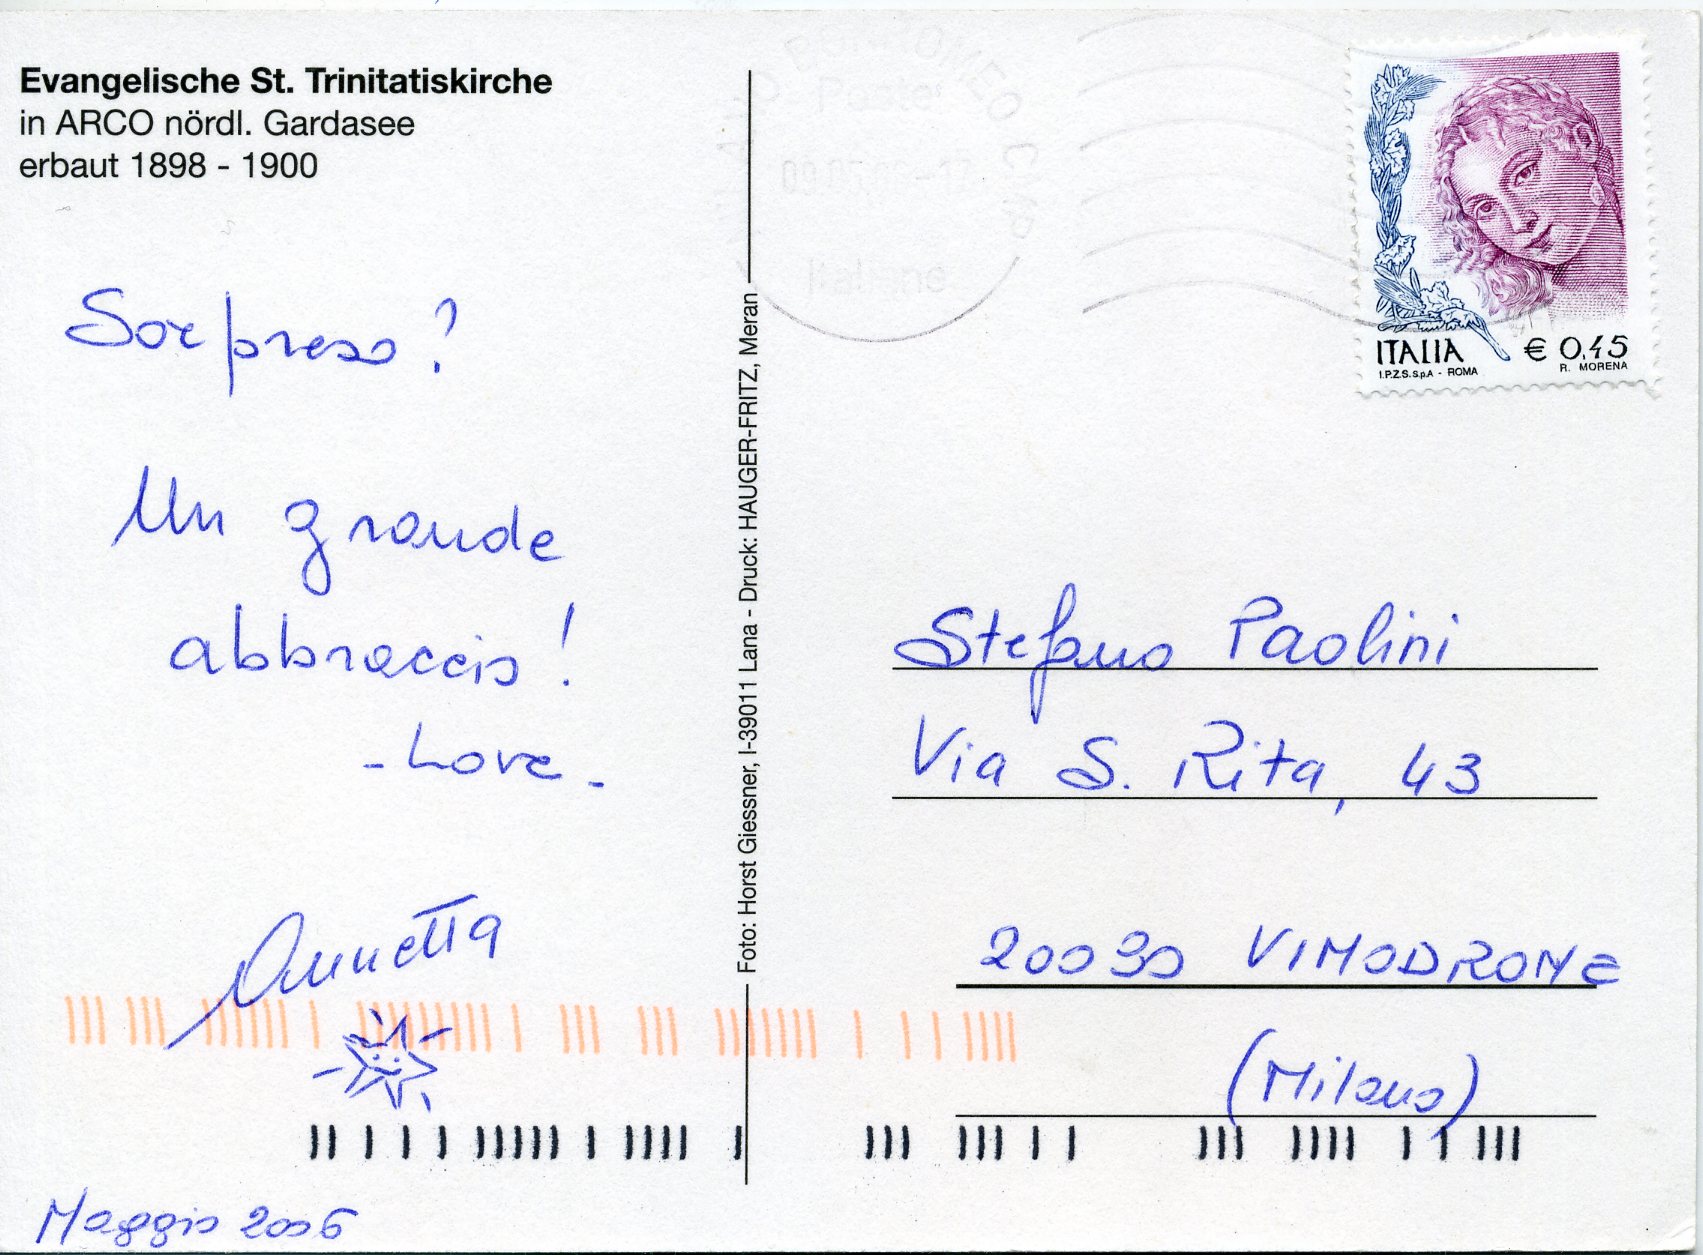 Evangelische St. Trinitatiskirche
in ARCO nördl. Gardasee
erbaut 1898 - 1900
Sorpreso?
Un grande
abbraccio!
- Love -
Annetta
Maggio 2006
Foto: Horst Giessner, I-39011 Lana - Druck: HAUGER-FRITZ, Meran
ITALIA € 0,45
I.P.Z.S. S.p.A. - ROMA R. MORENA
Stefano Paolini
Via S. Rita, 43
20090 VIMODRONE
(Milano)